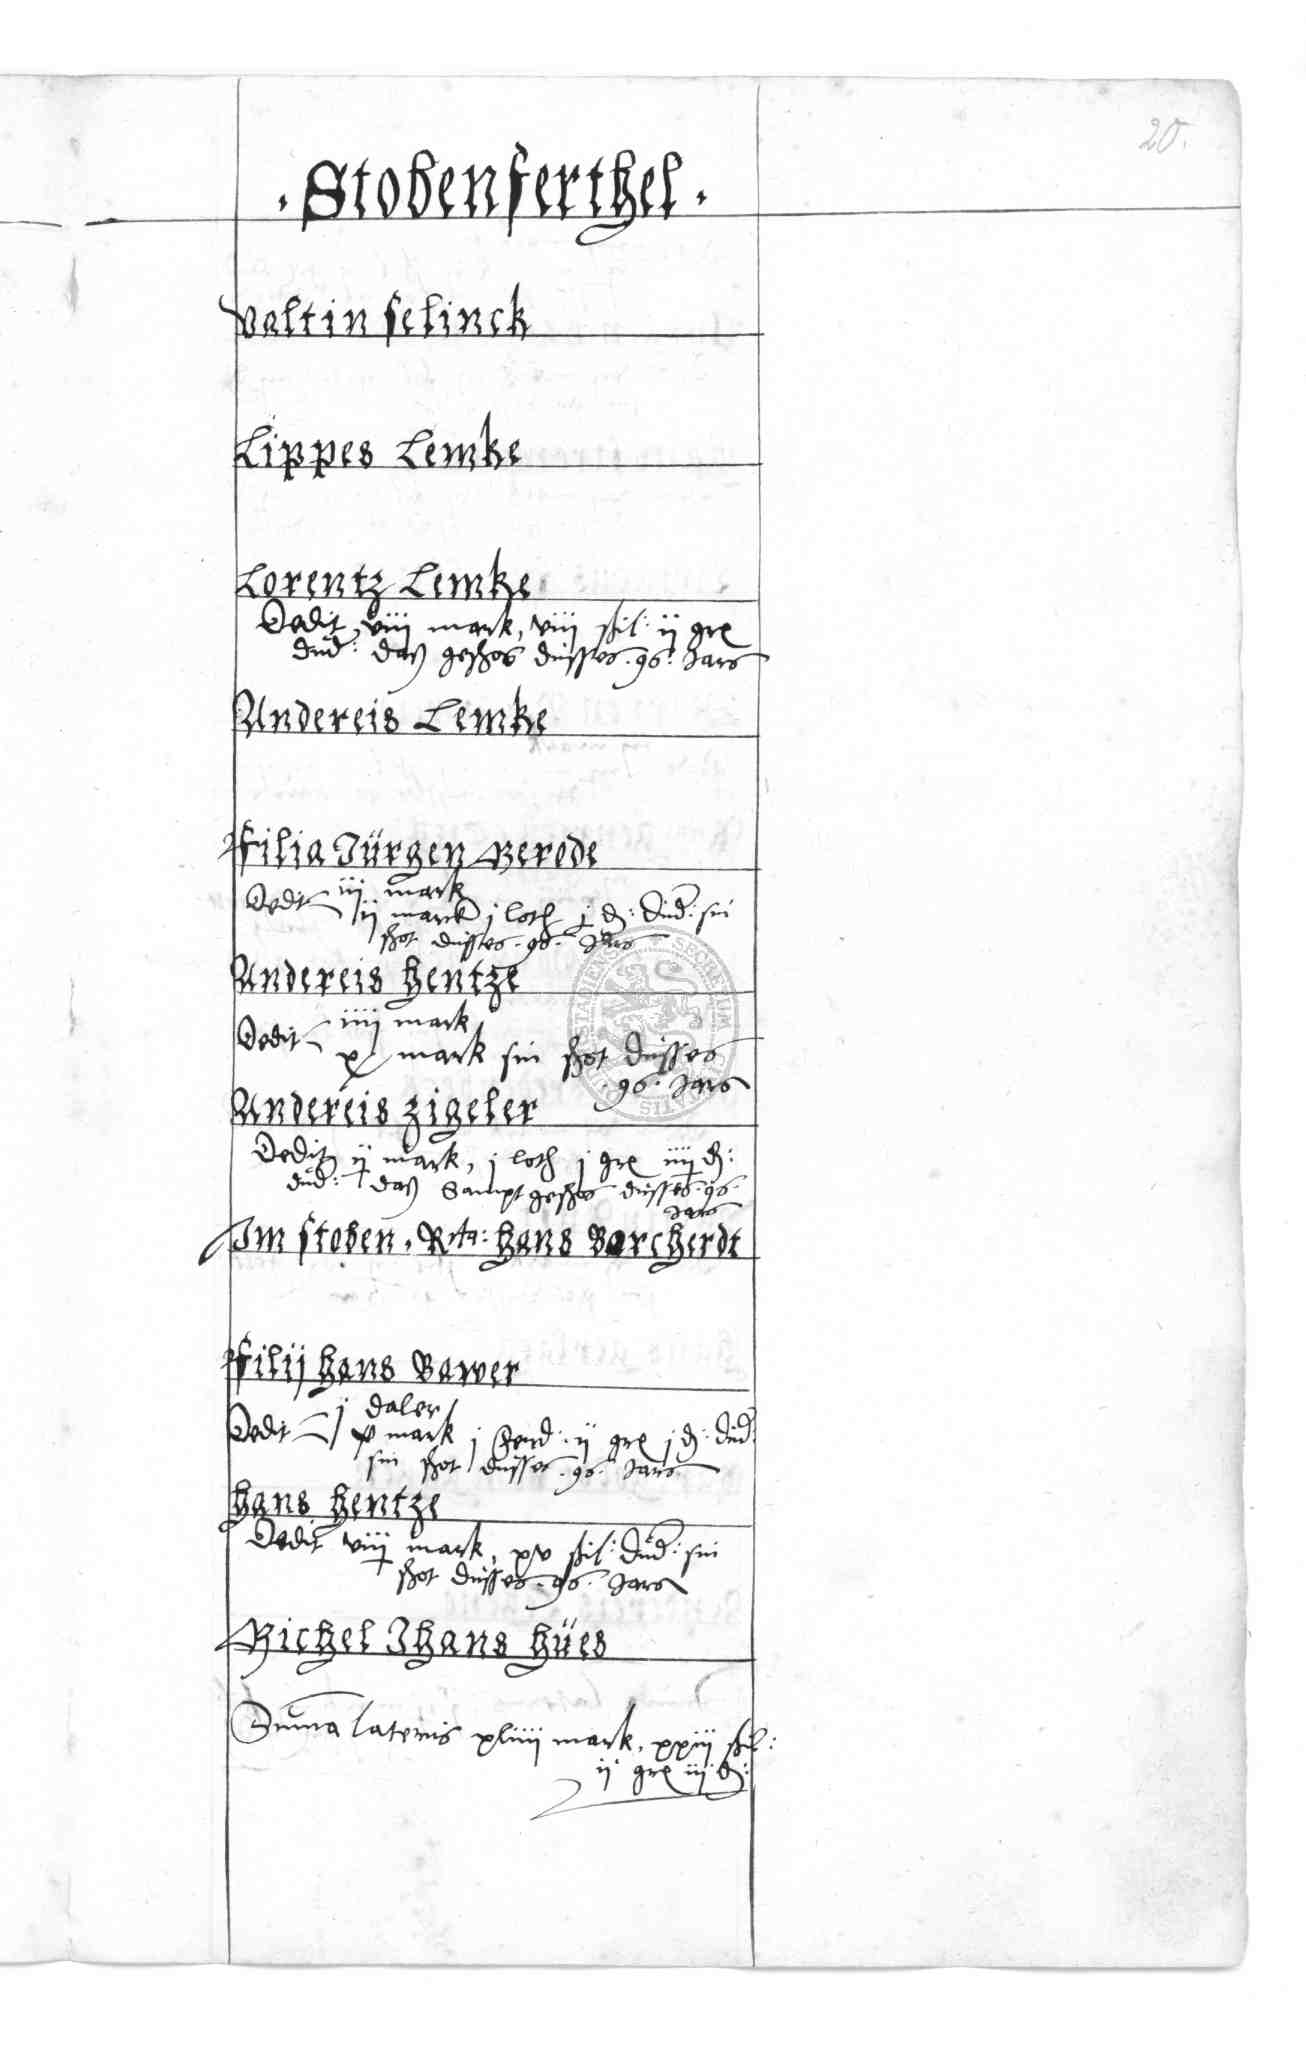 20.
. Stobenferthel .
Valtin selinck
Lippes Lemke
Lorentz Lemke
Dedit viii mark, viii ßil: ij grx
dnd: daß geshos dusses .96. Jars
Andereis Lemke
Filia Jürgen Berode
Dedt iij mark
ij marck j loth j d: dnd: sin
shot dusses .96. Jars
Andereis hentze
Dedit iiij mark
x mark sin shot dusses
.96. Jars
Andereis zigeler
Dedit ij mark, j loth j grx iiij d:
dnd: daß Sampt geshos dusses .96.
Jars
Im stoben. Rta: hans Borcherdt
Filij hans Bawer
Dedit j daler
mark j ferd: ij grx j d: dnd:
sin shot dusses .96. Jars
hans hentze
Dedit viij mark, xv ßil: dnd: sin
shot dusses .96. Jars
Michel Jhans hües
Suma lateris xliiij mark, xxiij ßil:
ij grx iij d:
SECRETUM